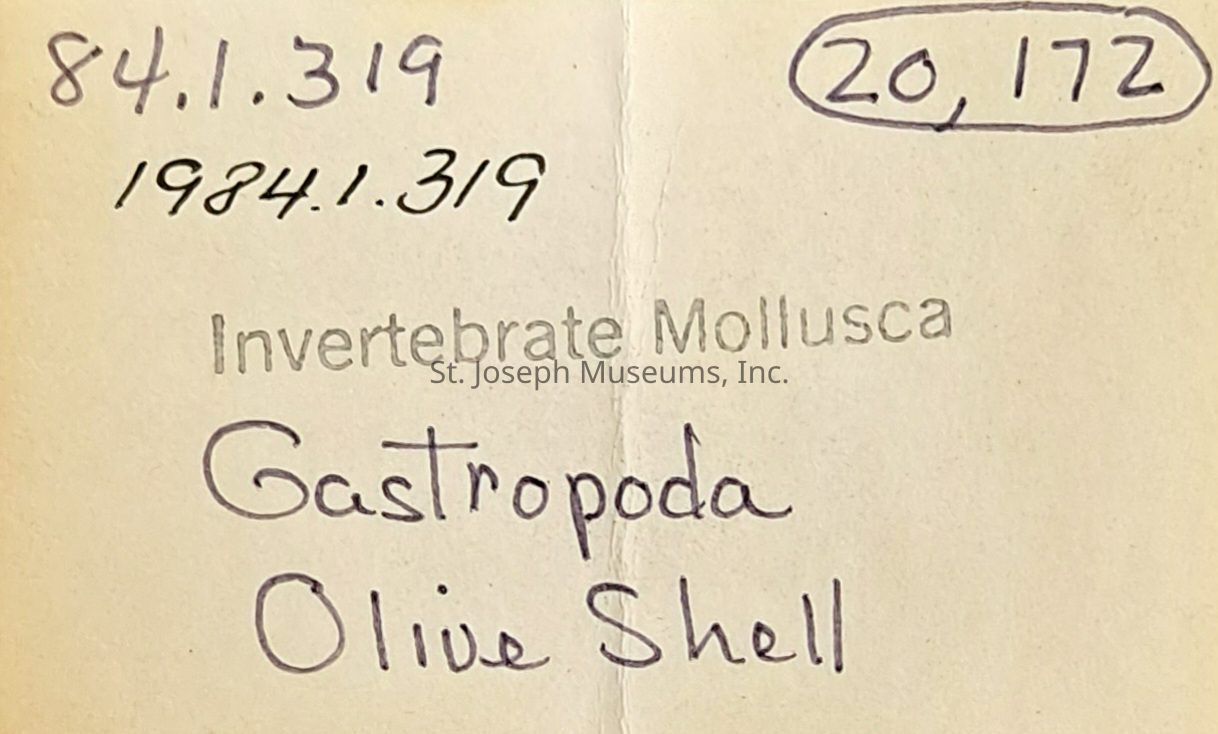 84.1.319 20,172
1984.1.319
Invertebrate Mollusca
St. Joseph Museums, Inc.
Gastropoda
Olive Shell